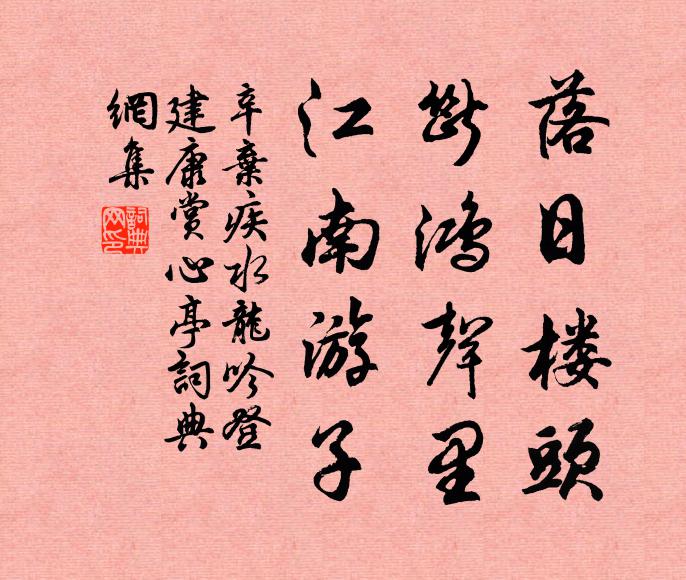 落日楼頭
斷鴻聲里
江南游子
辛棄疾水龍吟登
建康賞心亭詞典
網集
詞典網印